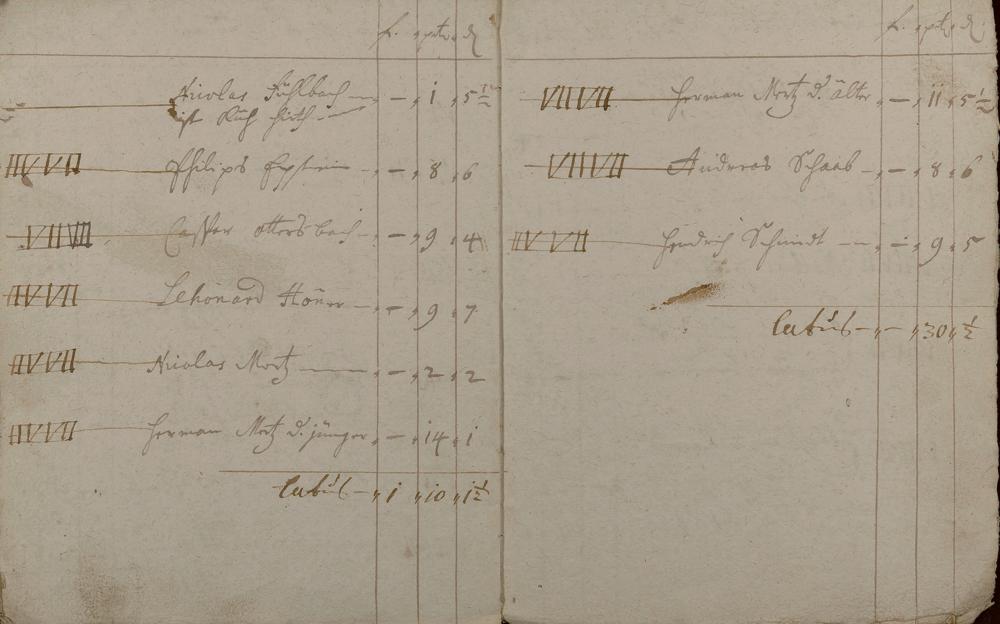 f. ptz. d.
Nicolas Fühlbach — „ — „ 1 „ 5 1/2
ist Küh hirth —
IIVVII Philips Epstein — „ — „ 8 „ 6
VIIVII Casper Ottersbach — „ — „ 9 „ 4
IIVVII Lehonard Höner — „ — „ 9 „ 7
IIVVII Nicolas Mertz — „ — „ 2 „ 2
IIVVII Herman Mertz d. jünger „ — „ 14 „ 1
latus — „ 1 „ 10 „ 1 1/2
f. ptz. d.
VIIVII Herman Mertz d. älter „ — „ 11 „ 5 1/2
VIIVII Andreas Schaab — „ — „ 8 „ 6
IIVVII Hendrich Schmidt — „ — „ 9 „ 5
latus — „ — „ 30 „ 1/2